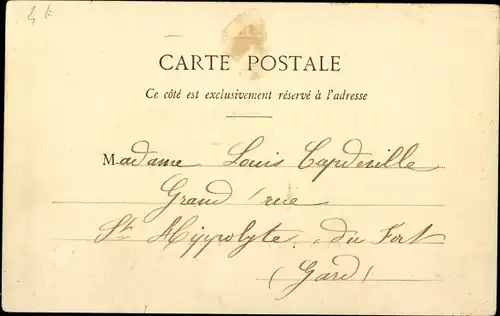 4 €
CARTE POSTALE
Ce côté est exclusivement réservé à l'adresse
Madame Louis Capdeville
Grand'rue
St Hippolyte du Fort
(Gard)